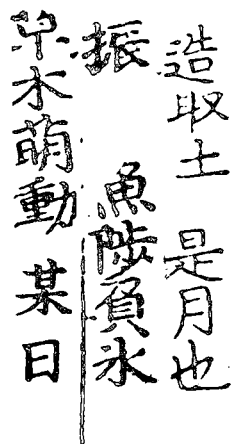 造取土 是月也
振 魚陟負氷
草木萌動 某日